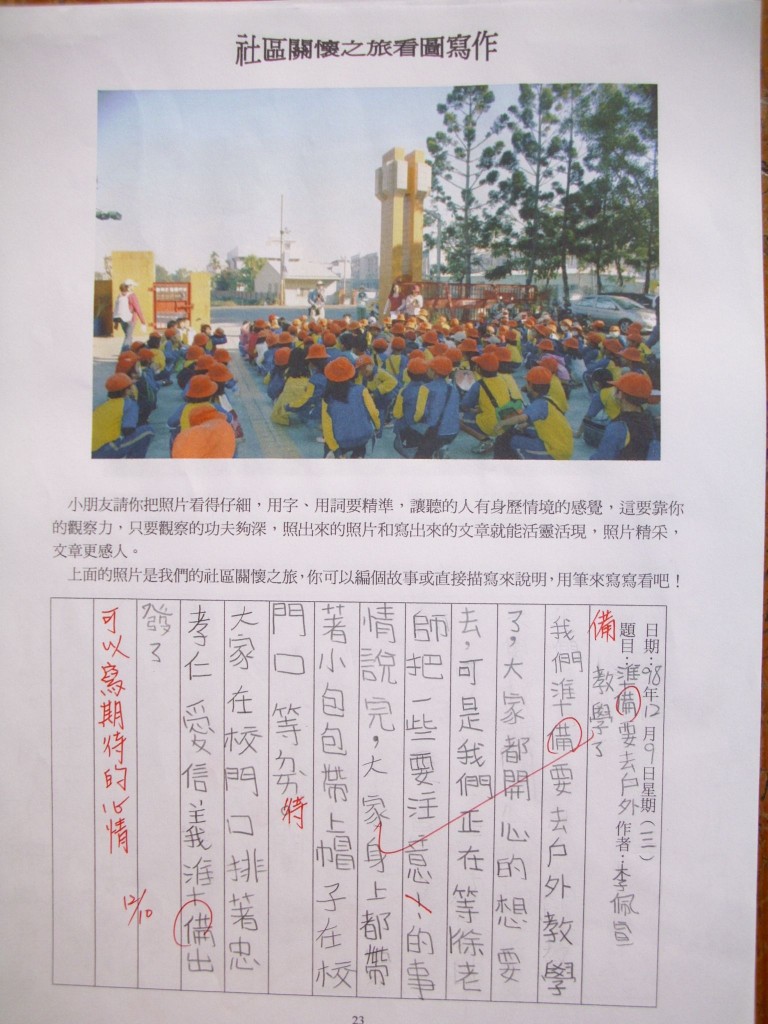 社區關懷之旅看圖寫作
小朋友請你把照片看得仔細，用字、用詞要精準，讓聽的人有身歷情境的感覺，這要靠你
的觀察力，只要觀察的功夫夠深，照出來的照片和寫出來的文章就能活靈活現，照片精采，
文章更感人。
上面的照片是我們的社區關懷之旅，你可以編個故事或直接描寫來說明，用筆來寫寫看吧！
日期：98年12月9日星期（三）
題目：準備要去戶外 作者：李佩宣
教學了
備
我們準備要去戶外教學
了，大家都開心的想要
去，可是我們正在等徐老
師把一些要注意的事
情說完，大家身上都帶
著小包包帶上帽子在校
門口等
待
大家在校門口排著忠
孝仁愛信義準備出
發了
可以寫期待的心情
12/10
23